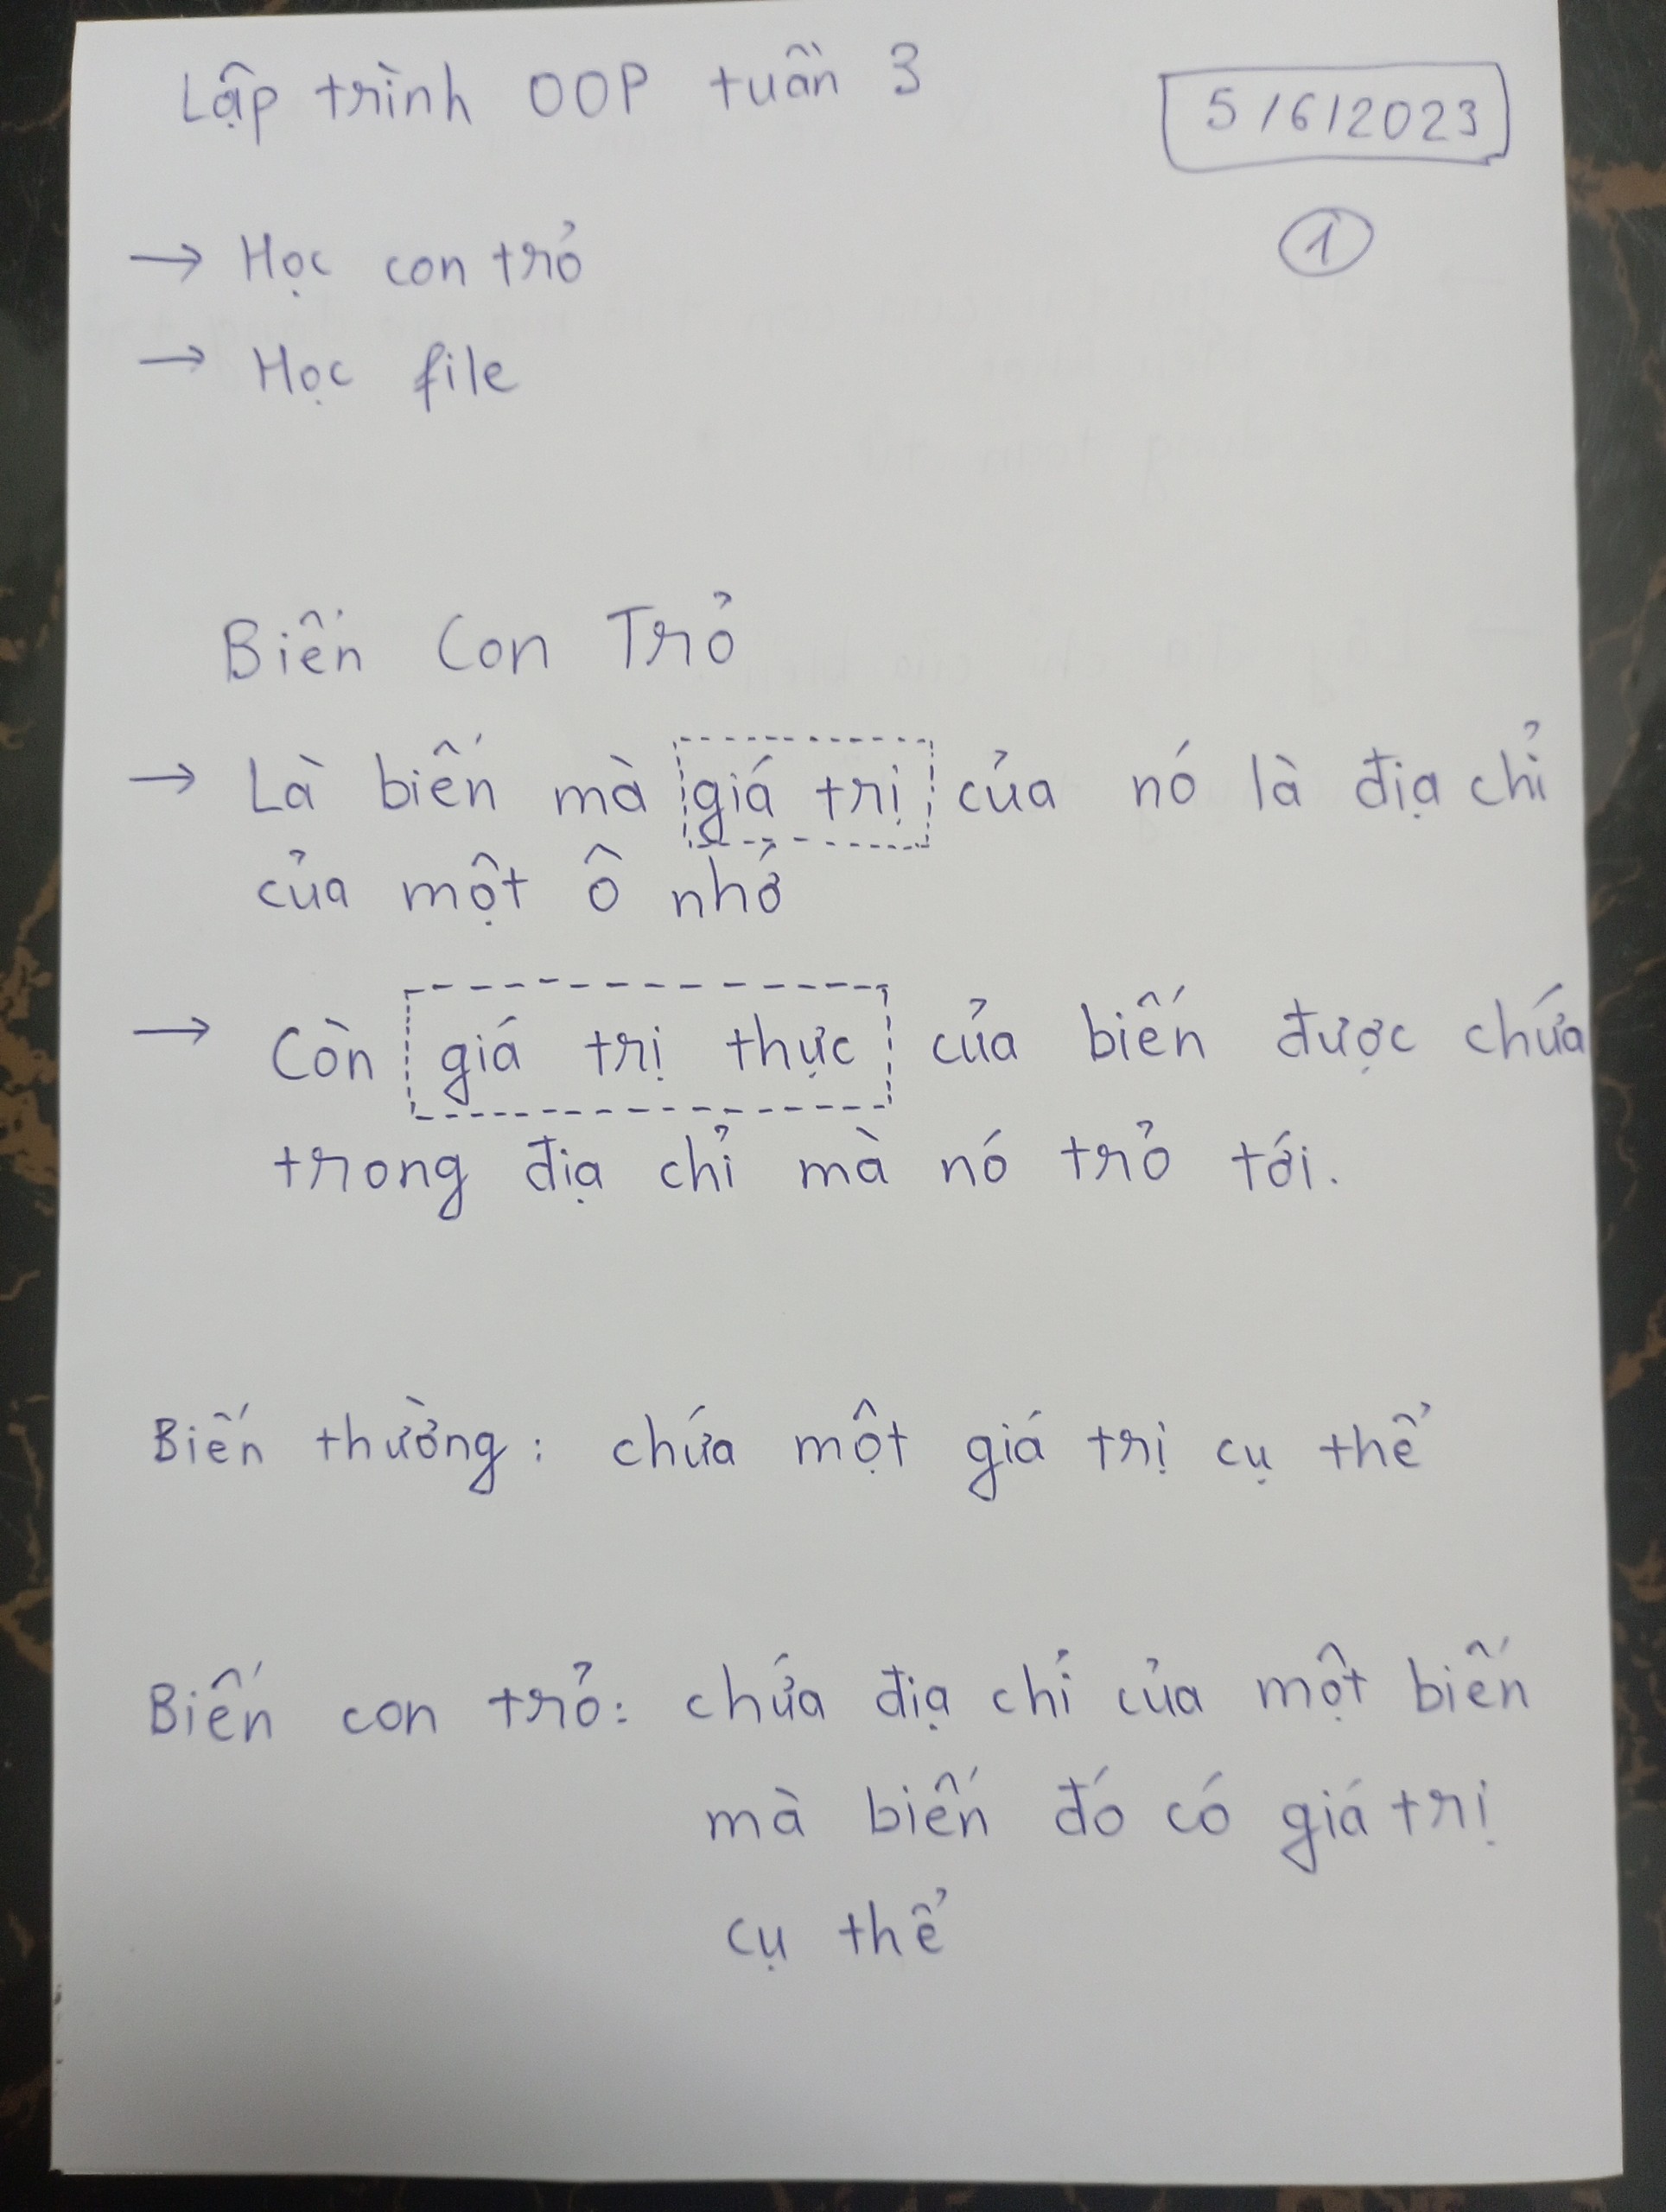 Lập trình OOP tuần 3
5/6/2023
1
→ Học con trỏ
→ Học file
Biến Con Trỏ
→ Là biến mà giá trị của nó là địa chỉ
của một ô nhớ
→ Còn giá trị thực của biến được chứa
trong địa chỉ mà nó trỏ tới.
Biến thường: chứa một giá trị cụ thể
Biến con trỏ: chứa địa chỉ của một biến
mà biến đó có giá trị
cụ thể